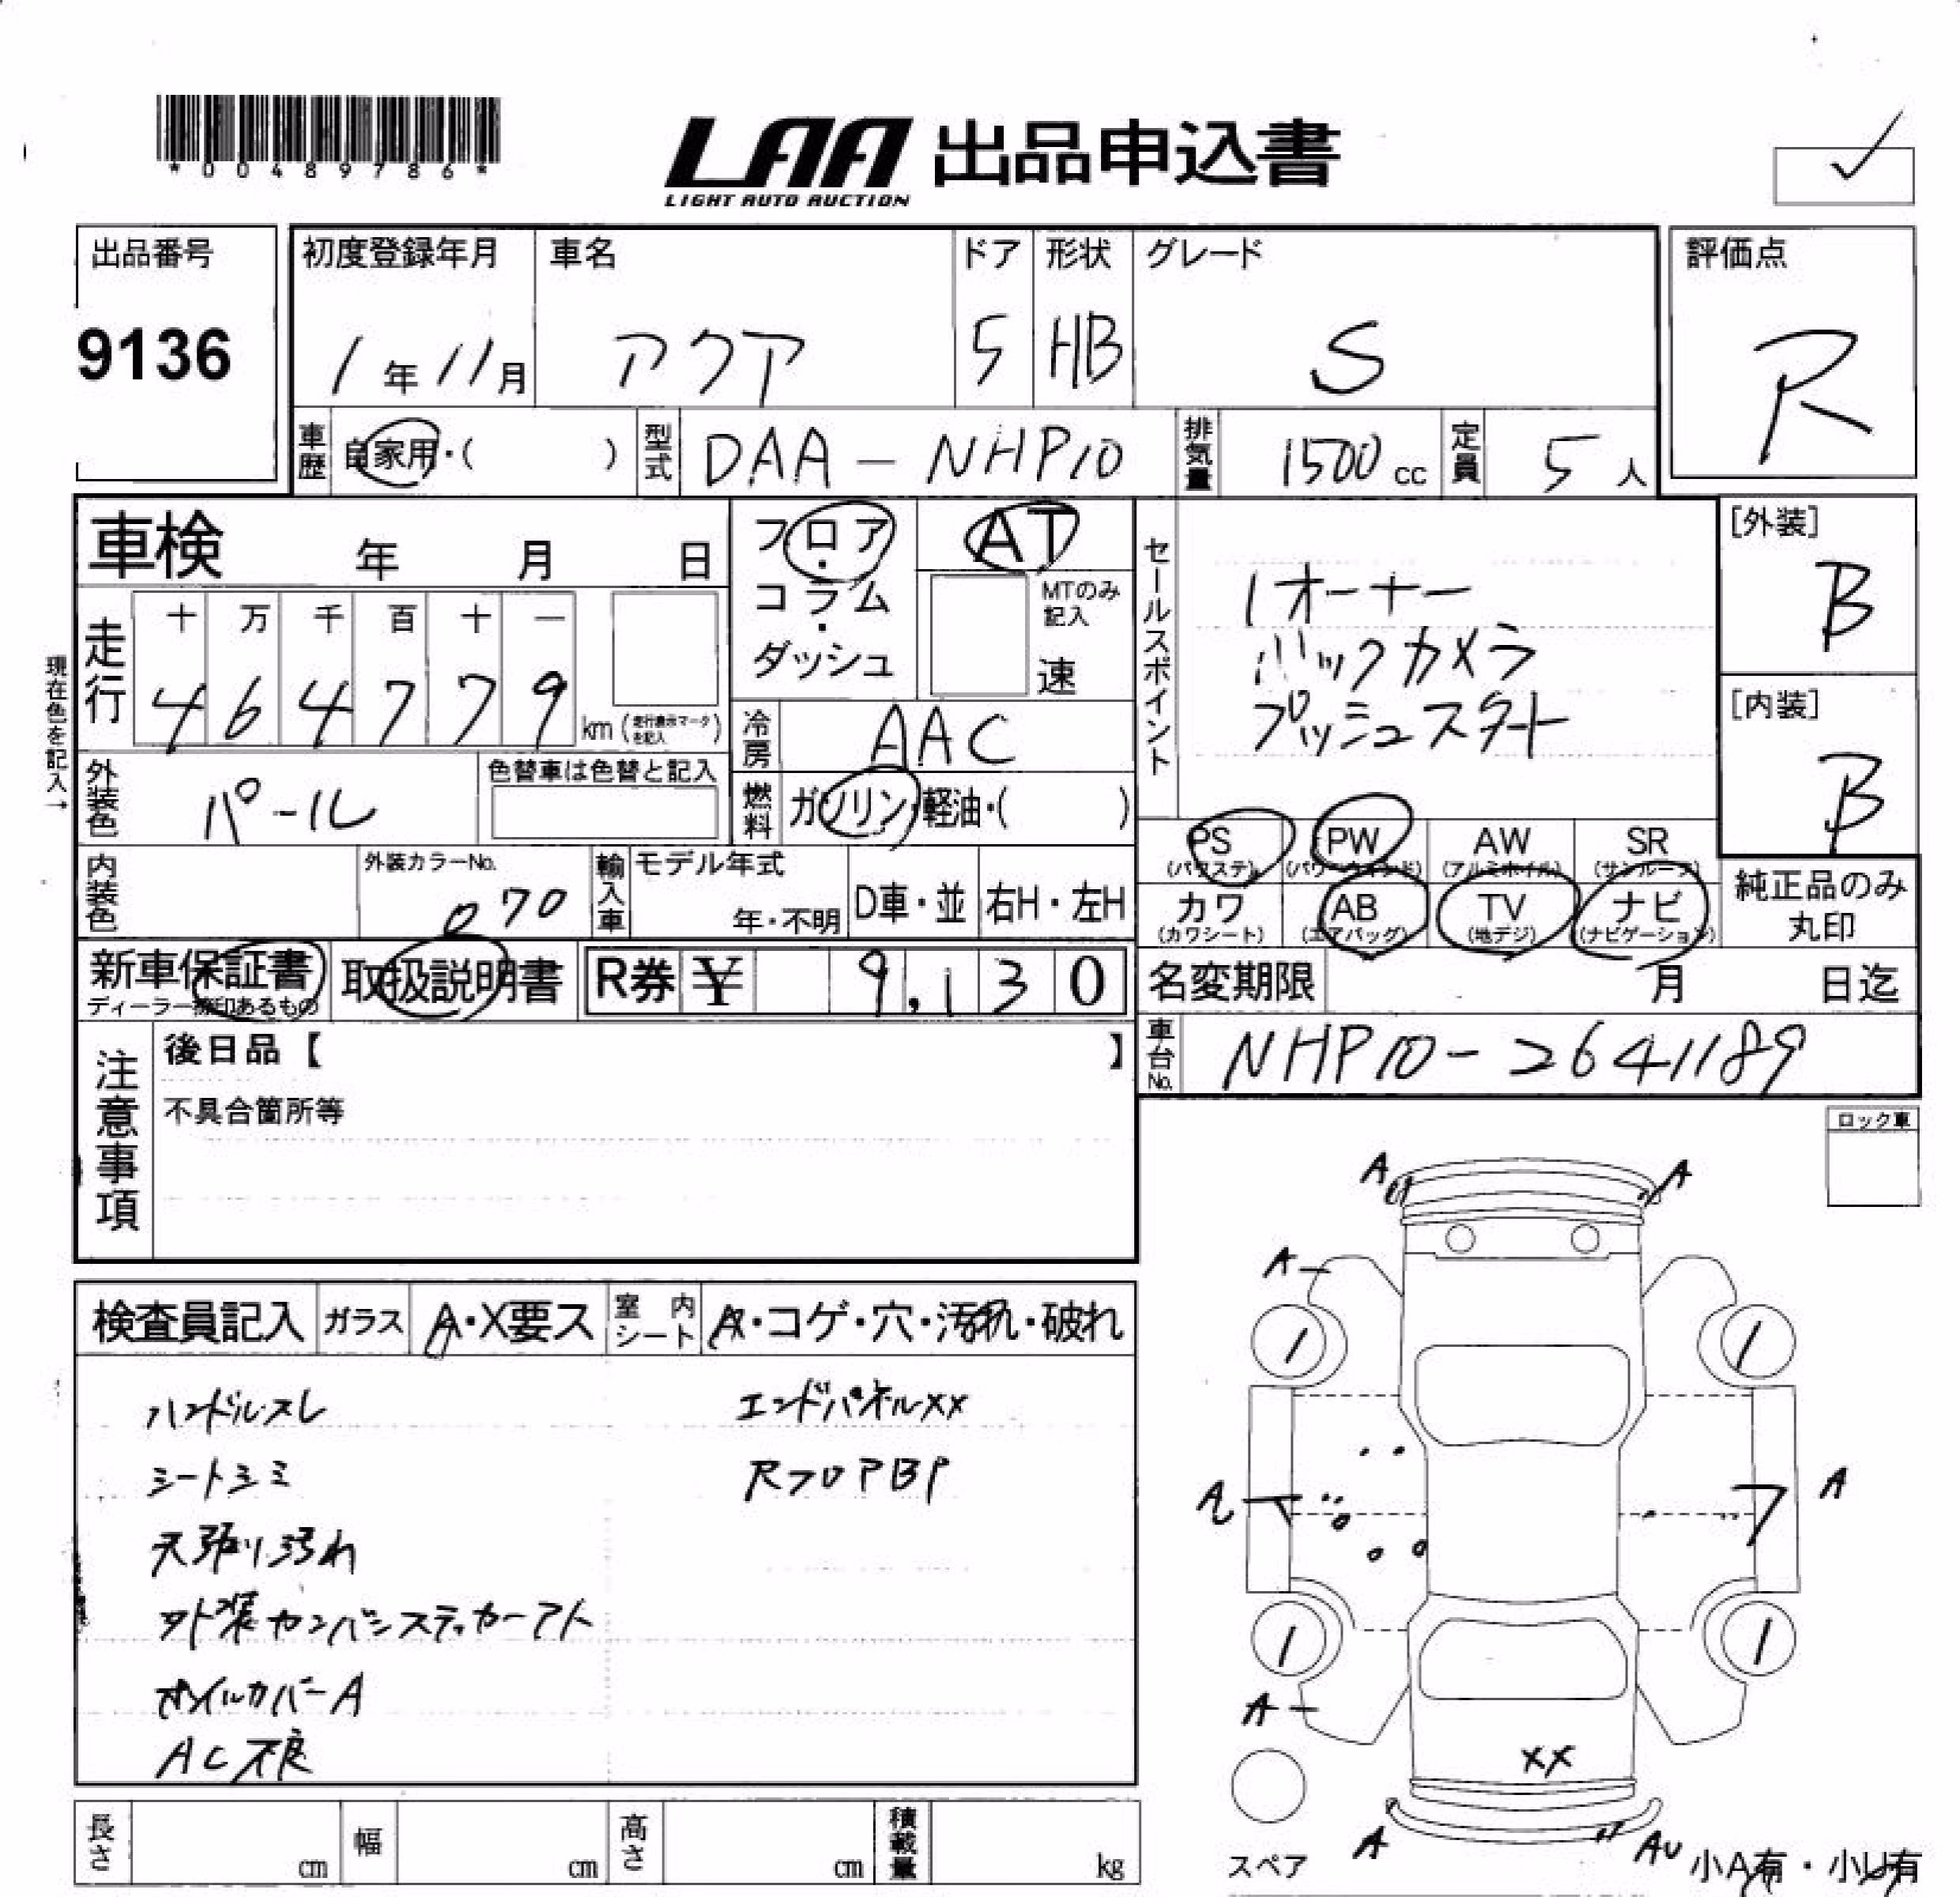 *00489786*
LAA 出品申込書
LIGHT AUTO AUCTION
出品番号
9136
初度登録年月
1年11月
車名
アクア
ドア
5
形状
HB
グレード
S
評価点
R
車歴
自家用・( )
型式
DAA-NHP10
排気量
1500cc
定員
5人
車検 年 月 日
現在色を記入→
走行
十 万 千 百 十 一
4 6 4 7 7 9
km (走行表示マークを記入)
フロア・コラム・ダッシュ
AT
MTのみ記入
速
冷房
AAC
燃料
ガソリン・軽油・( )
外装色
パール
色替車は色替と記入
内装色
外装カラーNo.
070
輸入車
モデル年式
年・不明
D車・並
右H・左H
セールスポイント
1オーナー
バックカメラ
プッシュスタート
[外装]
B
[内装]
B
PS (パワステ)
PW (パワーウインド)
AW (アルミホイル)
SR (サンルーフ)
カワ (カワシート)
AB (エアバッグ)
TV (地デジ)
ナビ (ナビゲーション)
純正品のみ丸印
新車保証書
ディーラー捺印あるもの
取扱説明書
R券 ¥ 9,130
名変期限 月 日迄
車台No.
NHP10-2641189
注意事項
後日品【 】
不具合箇所等
ロック車
検査員記入
ガラス
A・X要ス
室内シート
A・コゲ・穴・汚れ・破れ
ハンドルスレ
シートシミ
天張り汚れ
外装カンバンステッカーアト
オイルカバーA
AC不良
エンドパネルXX
RフロアBP
A A
A
A A
A
XX
A AU
スペア
小A有・小U有
長さ cm
幅 cm
高さ cm
積載量 kg